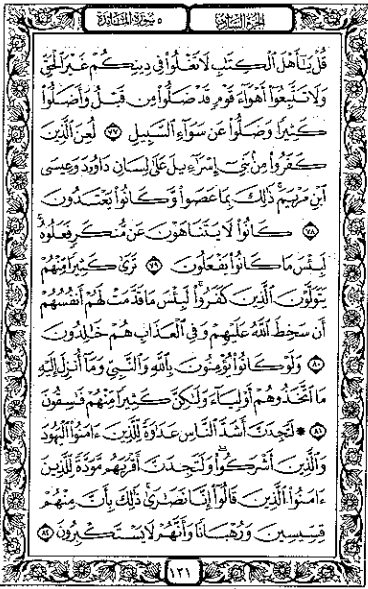 الجزء السادس
٥ سورة المائدة
قُلْ يَٰٓأَهْلَ ٱلْكِتَٰبِ لَا تَغْلُوا۟ فِى دِينِكُمْ غَيْرَ ٱلْحَقِّ
وَلَا تَتَّبِعُوٓا۟ أَهْوَآءَ قَوْمٍ قَدْ ضَلُّوا۟ مِن قَبْلُ وَأَضَلُّوا۟
كَثِيرًا وَضَلُّوا۟ عَن سَوَآءِ ٱلسَّبِيلِ ٧٧ لُعِنَ ٱلَّذِينَ
كَفَرُوا۟ مِنۢ بَنِىٓ إِسْرَٰٓءِيلَ عَلَىٰ لِسَانِ دَاوُۥدَ وَعِيسَى
ٱبْنِ مَرْيَمَ ۚ ذَٰلِكَ بِمَا عَصَوا۟ وَّكَانُوا۟ يَعْتَدُونَ
٧٨ كَانُوا۟ لَا يَتَنَاهَوْنَ عَن مُّنكَرٍ فَعَلُوهُ ۚ
لَبِئْسَ مَا كَانُوا۟ يَفْعَلُونَ ٧٩ تَرَىٰ كَثِيرًا مِّنْهُمْ
يَتَوَلَّوْنَ ٱلَّذِينَ كَفَرُوا۟ ۚ لَبِئْسَ مَا قَدَّمَتْ لَهُمْ أَنفُسُهُمْ
أَن سَخِطَ ٱللَّهُ عَلَيْهِمْ وَفِى ٱلْعَذَابِ هُمْ خَٰلِدُونَ
٨٠ وَلَوْ كَانُوا۟ يُؤْمِنُونَ بِٱللَّهِ وَٱلنَّبِىِّ وَمَآ أُنزِلَ إِلَيْهِ
مَا ٱتَّخَذُوهُمْ أَوْلِيَآءَ وَلَٰكِنَّ كَثِيرًا مِّنْهُمْ فَٰسِقُونَ
٨١ ۞ لَتَجِدَنَّ أَشَدَّ ٱلنَّاسِ عَدَٰوَةً لِّلَّذِينَ ءَامَنُوا۟ ٱلْيَهُودَ
وَٱلَّذِينَ أَشْرَكُوا۟ ۖ وَلَتَجِدَنَّ أَقْرَبَهُم مَّوَدَّةً لِّلَّذِينَ
ءَامَنُوا۟ ٱلَّذِينَ قَالُوٓا۟ إِنَّا نَصَٰرَىٰ ۚ ذَٰلِكَ بِأَنَّ مِنْهُمْ
قِسِّيسِينَ وَرُهْبَانًا وَأَنَّهُمْ لَا يَسْتَكْبِرُونَ ٨٢
١٢١